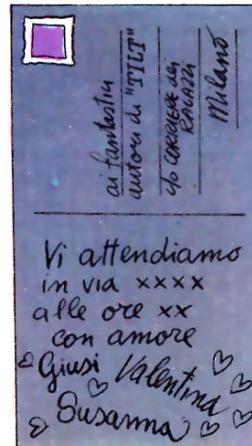 ai fantastici
autori di "TILT"
c/o CORRIERE dei
RAGAZZI
Milano
Vi attendiamo
in via xxxx
alle ore xx
con amore
Giusi Valentina
e Susanna